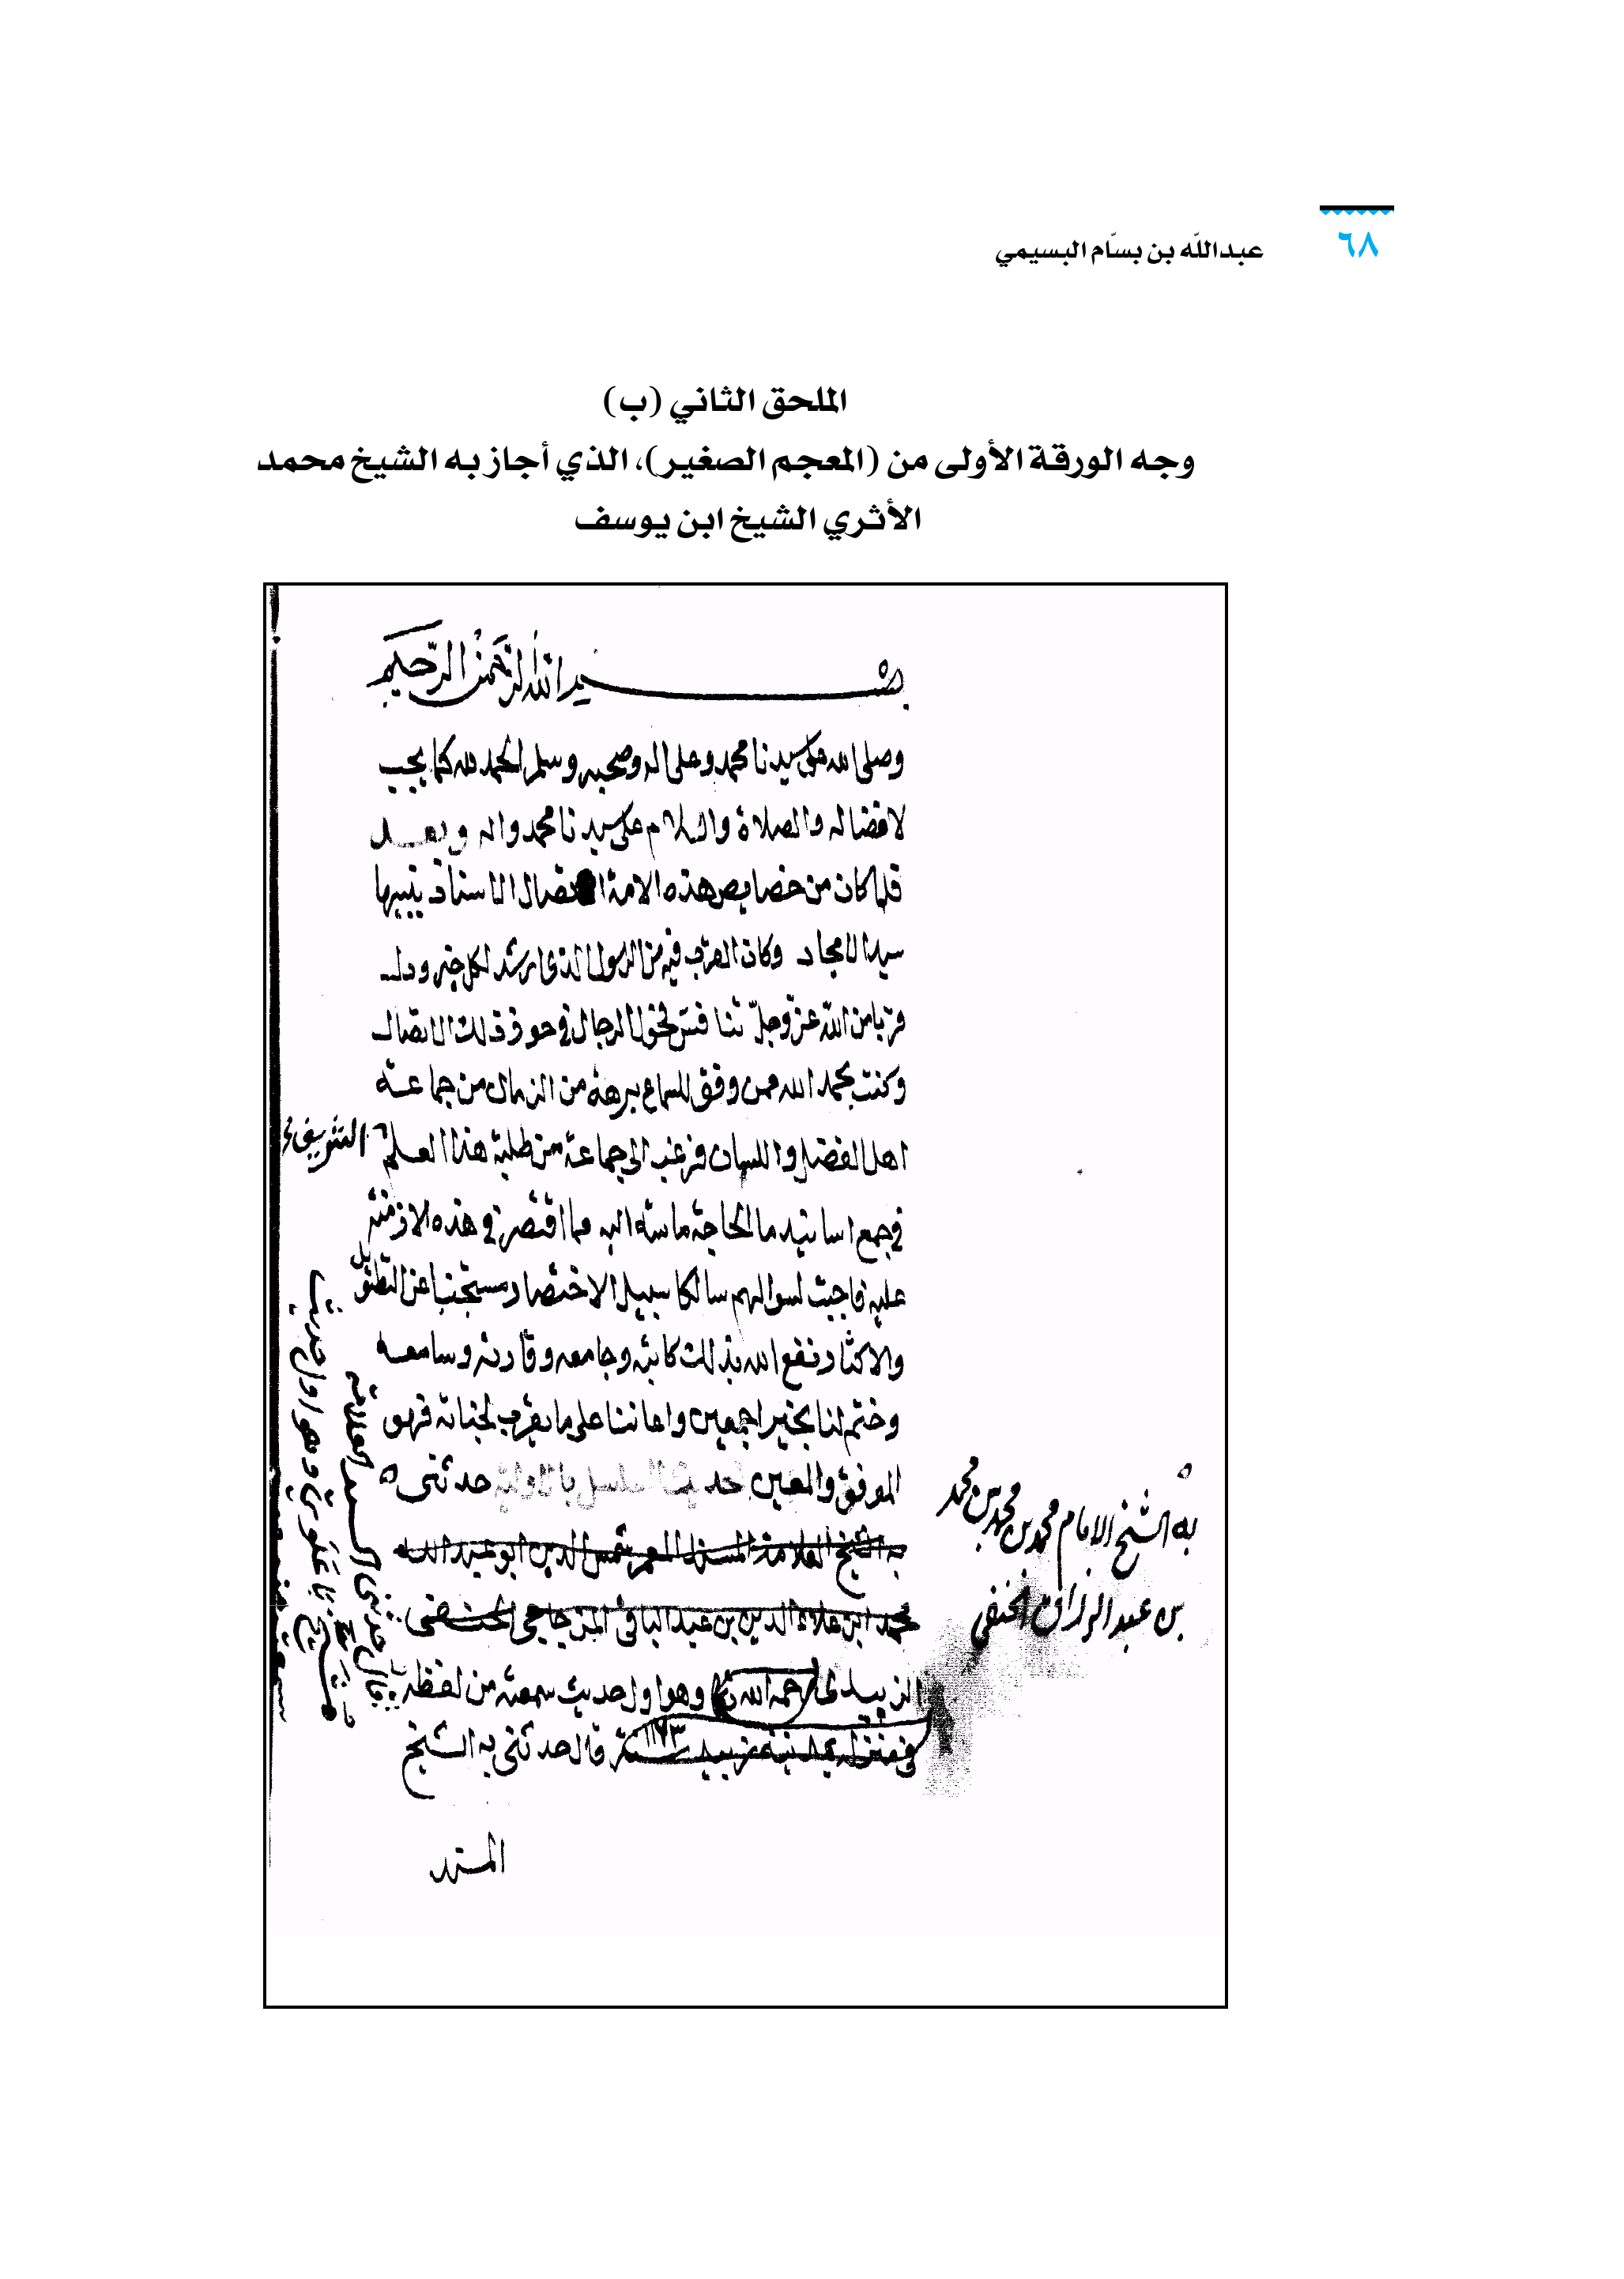 ٦٨
عبدالله بن بسّام البسيمي
الملحق الثاني (ب)
وجه الورقة الأولى من (المعجم الصغير)، الذي أجاز به الشيخ محمد
الأثري الشيخ ابن يوسف
بسم الله الرحمن الرحيم
وصلى الله على سيدنا محمد وعلى اله وصحبه وسلم الحمد لله كما يجب
لافضاله والصلاة والسلام على سيدنا محمد واله وبعد
فلما كان من خصايص هذه الامة اتصال الاسناد بنبيها
سيد الامجاد وكان القرب فيه من الرسول الذي ارشد لكل خير ودل
قربا من الله عز وجل ثنا فس فحول الرجال في حوز ذلك الاتصال
وكنت بحمد الله ممن وفق للسماع برهة من الزمان من جماعة
اهل الفضل واللسان فرغب الي جماعة من طلبة هذا العلم الشريف
في جمع اسانيد ما الحاجة ماسة اليه مما اقتصر في هذه الازمنة
عليه فاجبت لسوالهم سالكا سبيل الاختصار مستجنبا عن التطويل
والاكثار نفع الله بذلك كاتبه وجامعه وقارئه وسامعه
وختم لنا بخير اجمعين واعاننا على ما يقرب لجنانه فهو
الموفق والمعين حديث المسلسل بالاولية حدثني
به الشيخ العلامة المسند المعمر شمس الدين ابو عبد الله
محمد ابن علاء الدين بن عبد الباقي المزجاجي الحنفي
الزبيدي رحمه الله وهو اول حديث سمعته من لفظه
في منزله بمدينة زبيد سنة ١١٧٣ قال حدثني به الشيخ
المسند
به الشيخ الامام محمد بن محمد بن محمد
بن عبد الرزاق الحنفي
قال حدثني السيد العلامة
شيخ باعلوي وهو اول حديث
سمعته منه